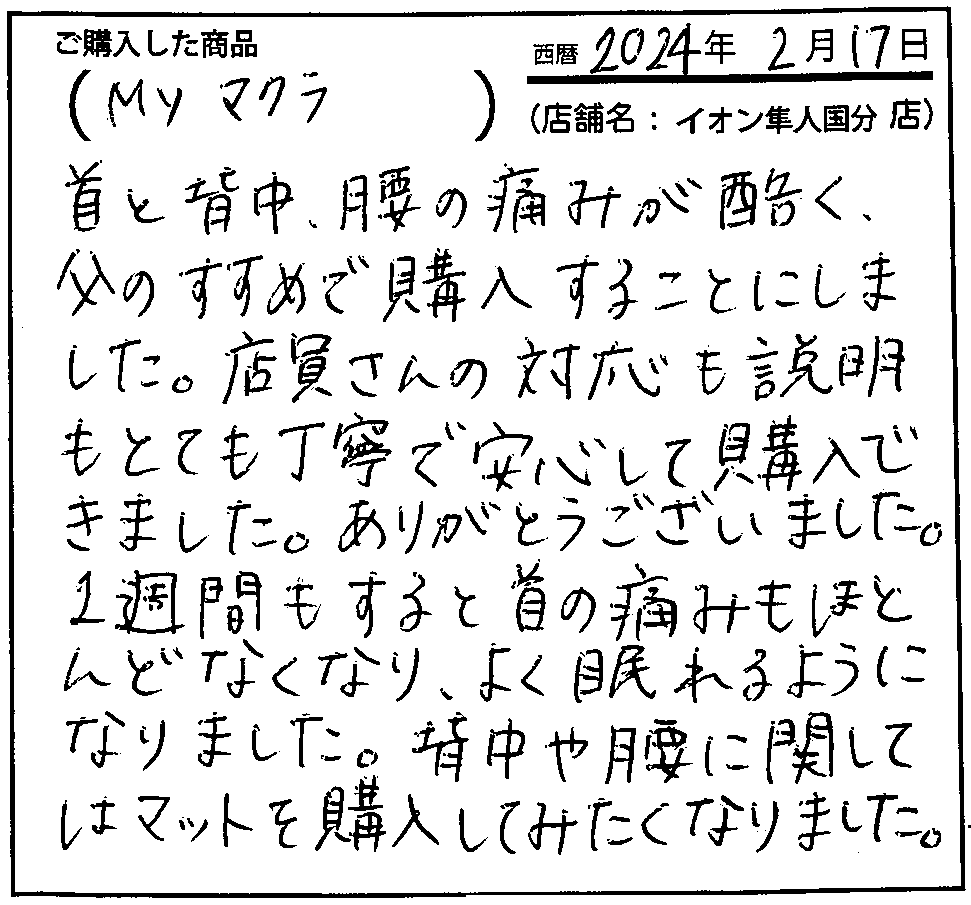 ご購入した商品
西暦 2024年 2月17日
(My マクラ)
(店舗名：イオン隼人国分 店)
首と背中、腰の痛みが酷く、
父のすすめで購入することにしま
した。店員さんの対応も説明
もとても丁寧で安心して購入で
きました。ありがとうございました。
1週間もすると首の痛みもほと
んどなくなり、よく眠れるように
なりました。背中や腰に関して
はマットを購入してみたくなりました。